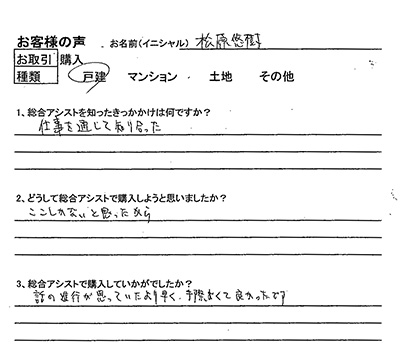 お客様の声 お名前(イニシャル) 松原悠樹
お取引 購入
種類 戸建 マンション 土地 その他
1、総合アシストを知ったきっかけは何ですか?
仕事を通じて知り合った
2、どうして総合アシストで購入しようと思いましたか?
ここしかないと思ったから
3、総合アシストで購入していかがでしたか?
話の進行が思っていたより早く、手際よくて良かったです